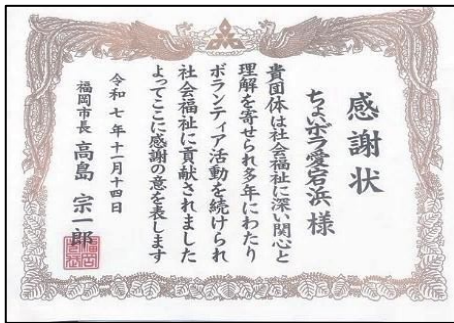 感謝状
ちょいボラ愛宕浜 様
貴団体は社会福祉に深い関心と
理解を寄せられ多年にわたり
ボランティア活動を続けられ
社会福祉に貢献されました
よってここに感謝の意を表します
令和七年十一月十四日
福岡市長 高島 宗一郎